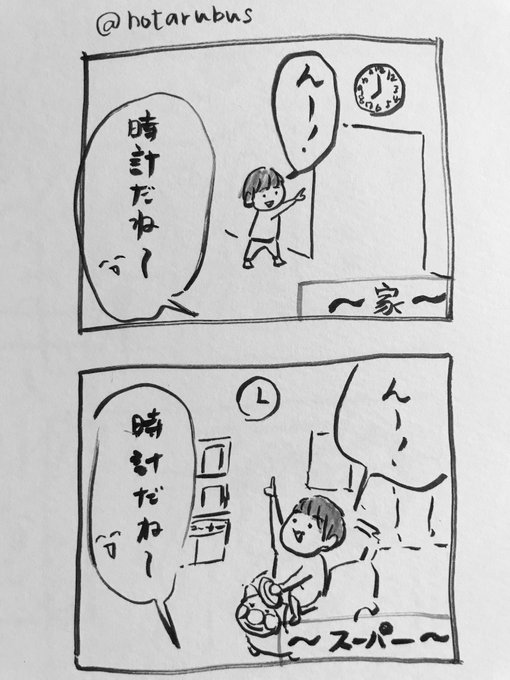 @hotarubus
んー！
時計だね〜
〜家〜
んー！
時計だね〜
〜スーパー〜